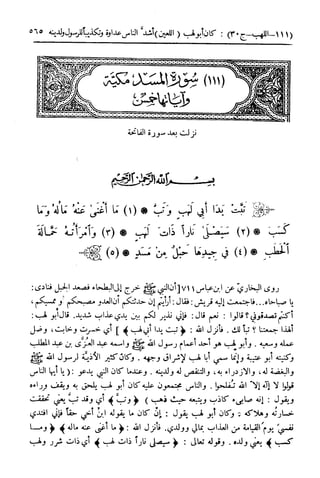 (١١١ - اللهب - ج ٣٠) : كان أبو لهب (اللعين) أشدّ الناس عداوة وتكذيباً للرسول ولدينه ٥٦٥
(١١١) سورة المسد مكية
وآياتها خمس
نزلت بعد سورة الفاتحة
بسم الله الرحمن الرحيم
تبت يدا أبي لهب وتب * (١) ما أغنى عنه ماله وما
كسب * (٢) سيصلى ناراً ذات لهب * (٣) وامرأته حمالة
الحطب * (٤) في جيدها حبل من مسد * (٥)
روى البخاري عن ابن عباس [أن النبي ﷺ خرج إلى البطحاء فصعد الجبل فنادى:
يا صباحاه... فاجتمعت إليه قريش: فقال: أرأيتم إن حدثتكم أن العدو مصبحكم أو ممسيكم،
أكنتم تصدقوني؟ قالوا: نعم قال: فإني نذير لكم بين يدي عذاب شديد. قال أبو لهب:
ألهذا جمعتنا؟ تباً لك. فأنزل الله: ﴿ تبت يدا أبي لهب ﴾ ] أي خسرت وخابت، وضل
عمله وسعيه. وأبو لهب هو أحد أعمام رسول الله ﷺ واسمه عبد العزّى بن عبد المطلب
وكنيته أبو عتيبة وإنما سمي أبا لهب لإشراق وجهه. وكان كثير الأذية لرسول الله ﷺ
والبغضة له، والازدراء به، والتنقص له ولدينه. وعندما كان النبي يدعو: (يا أيها الناس
قولوا لا إله إلا الله تفلحوا). والناس مجتمعون عليه كان أبو لهب يلحق به ويقف وراءه
ويقول: إنه صابىء كاذب ويتبعه حيث ذهب ) ﴿ وتب ﴾ أي وقد تبّ يعني تحققت
خسارته وهلاكه: وكان أبو لهب يقول: إن كان ما يقوله ابن أخي حقاً فإني أفتدي
نفسي يوم القيامة من العذاب بمالي وولدي. فأنزل الله: ﴿ ما أغنى عنه ماله ﴾ ﴿ وما
كسب ﴾ يعني ولده. وقوله تعالى: ﴿ سيصلى ناراً ذات لهب ﴾ أي ذات شرر ولهب